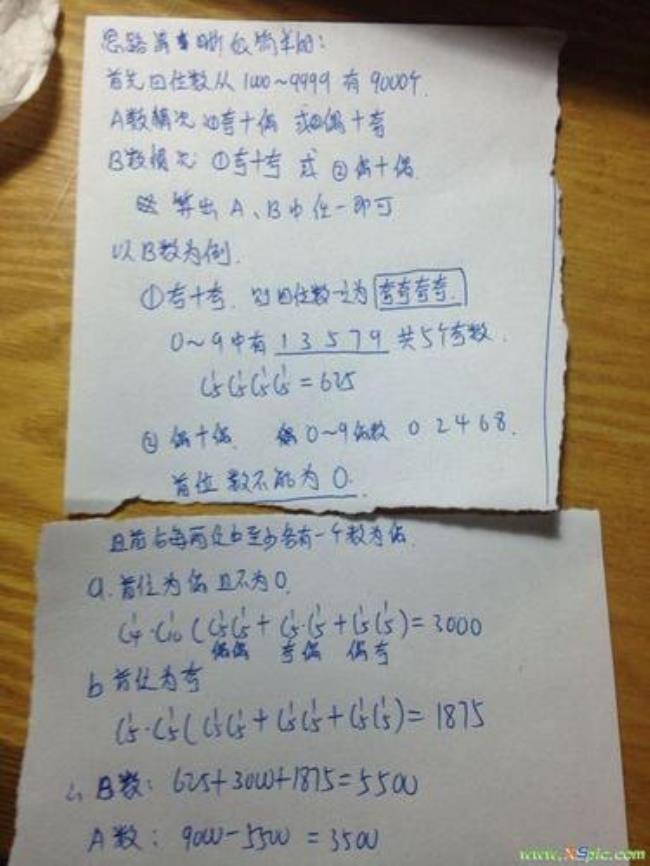 思路清晰最简单的：
首先四位数从1000~9999 有9000个.
A数情况 ①奇+偶 或②偶+奇
B数情况 ①奇+奇 或 ②偶+偶.
算出A、B中任一即可
以B数为例.
①奇+奇. 则四位数一定为 奇奇奇奇.
0~9中有 1 3 5 7 9 共5个奇数.
C¹₅C¹₅C¹₅C¹₅=625
② 偶+偶. 0~9偶数 0 2 4 6 8.
首位数不能为0.
且前后每两位中至少各有一个数为偶.
a. 首位为偶且不为0.
C¹₄·C¹₁₀(C¹₅C¹₅+C¹₅·C¹₅+C¹₅C¹₅)=3000
偶偶 奇偶 偶奇
b 首位为奇
C¹₅·C¹₅(C¹₅C¹₅+C¹₅C¹₅+C¹₅C¹₅)=1875
∴B数：625+3000+1875=5500
A数：9000-5500=3500
www.XSpic.com